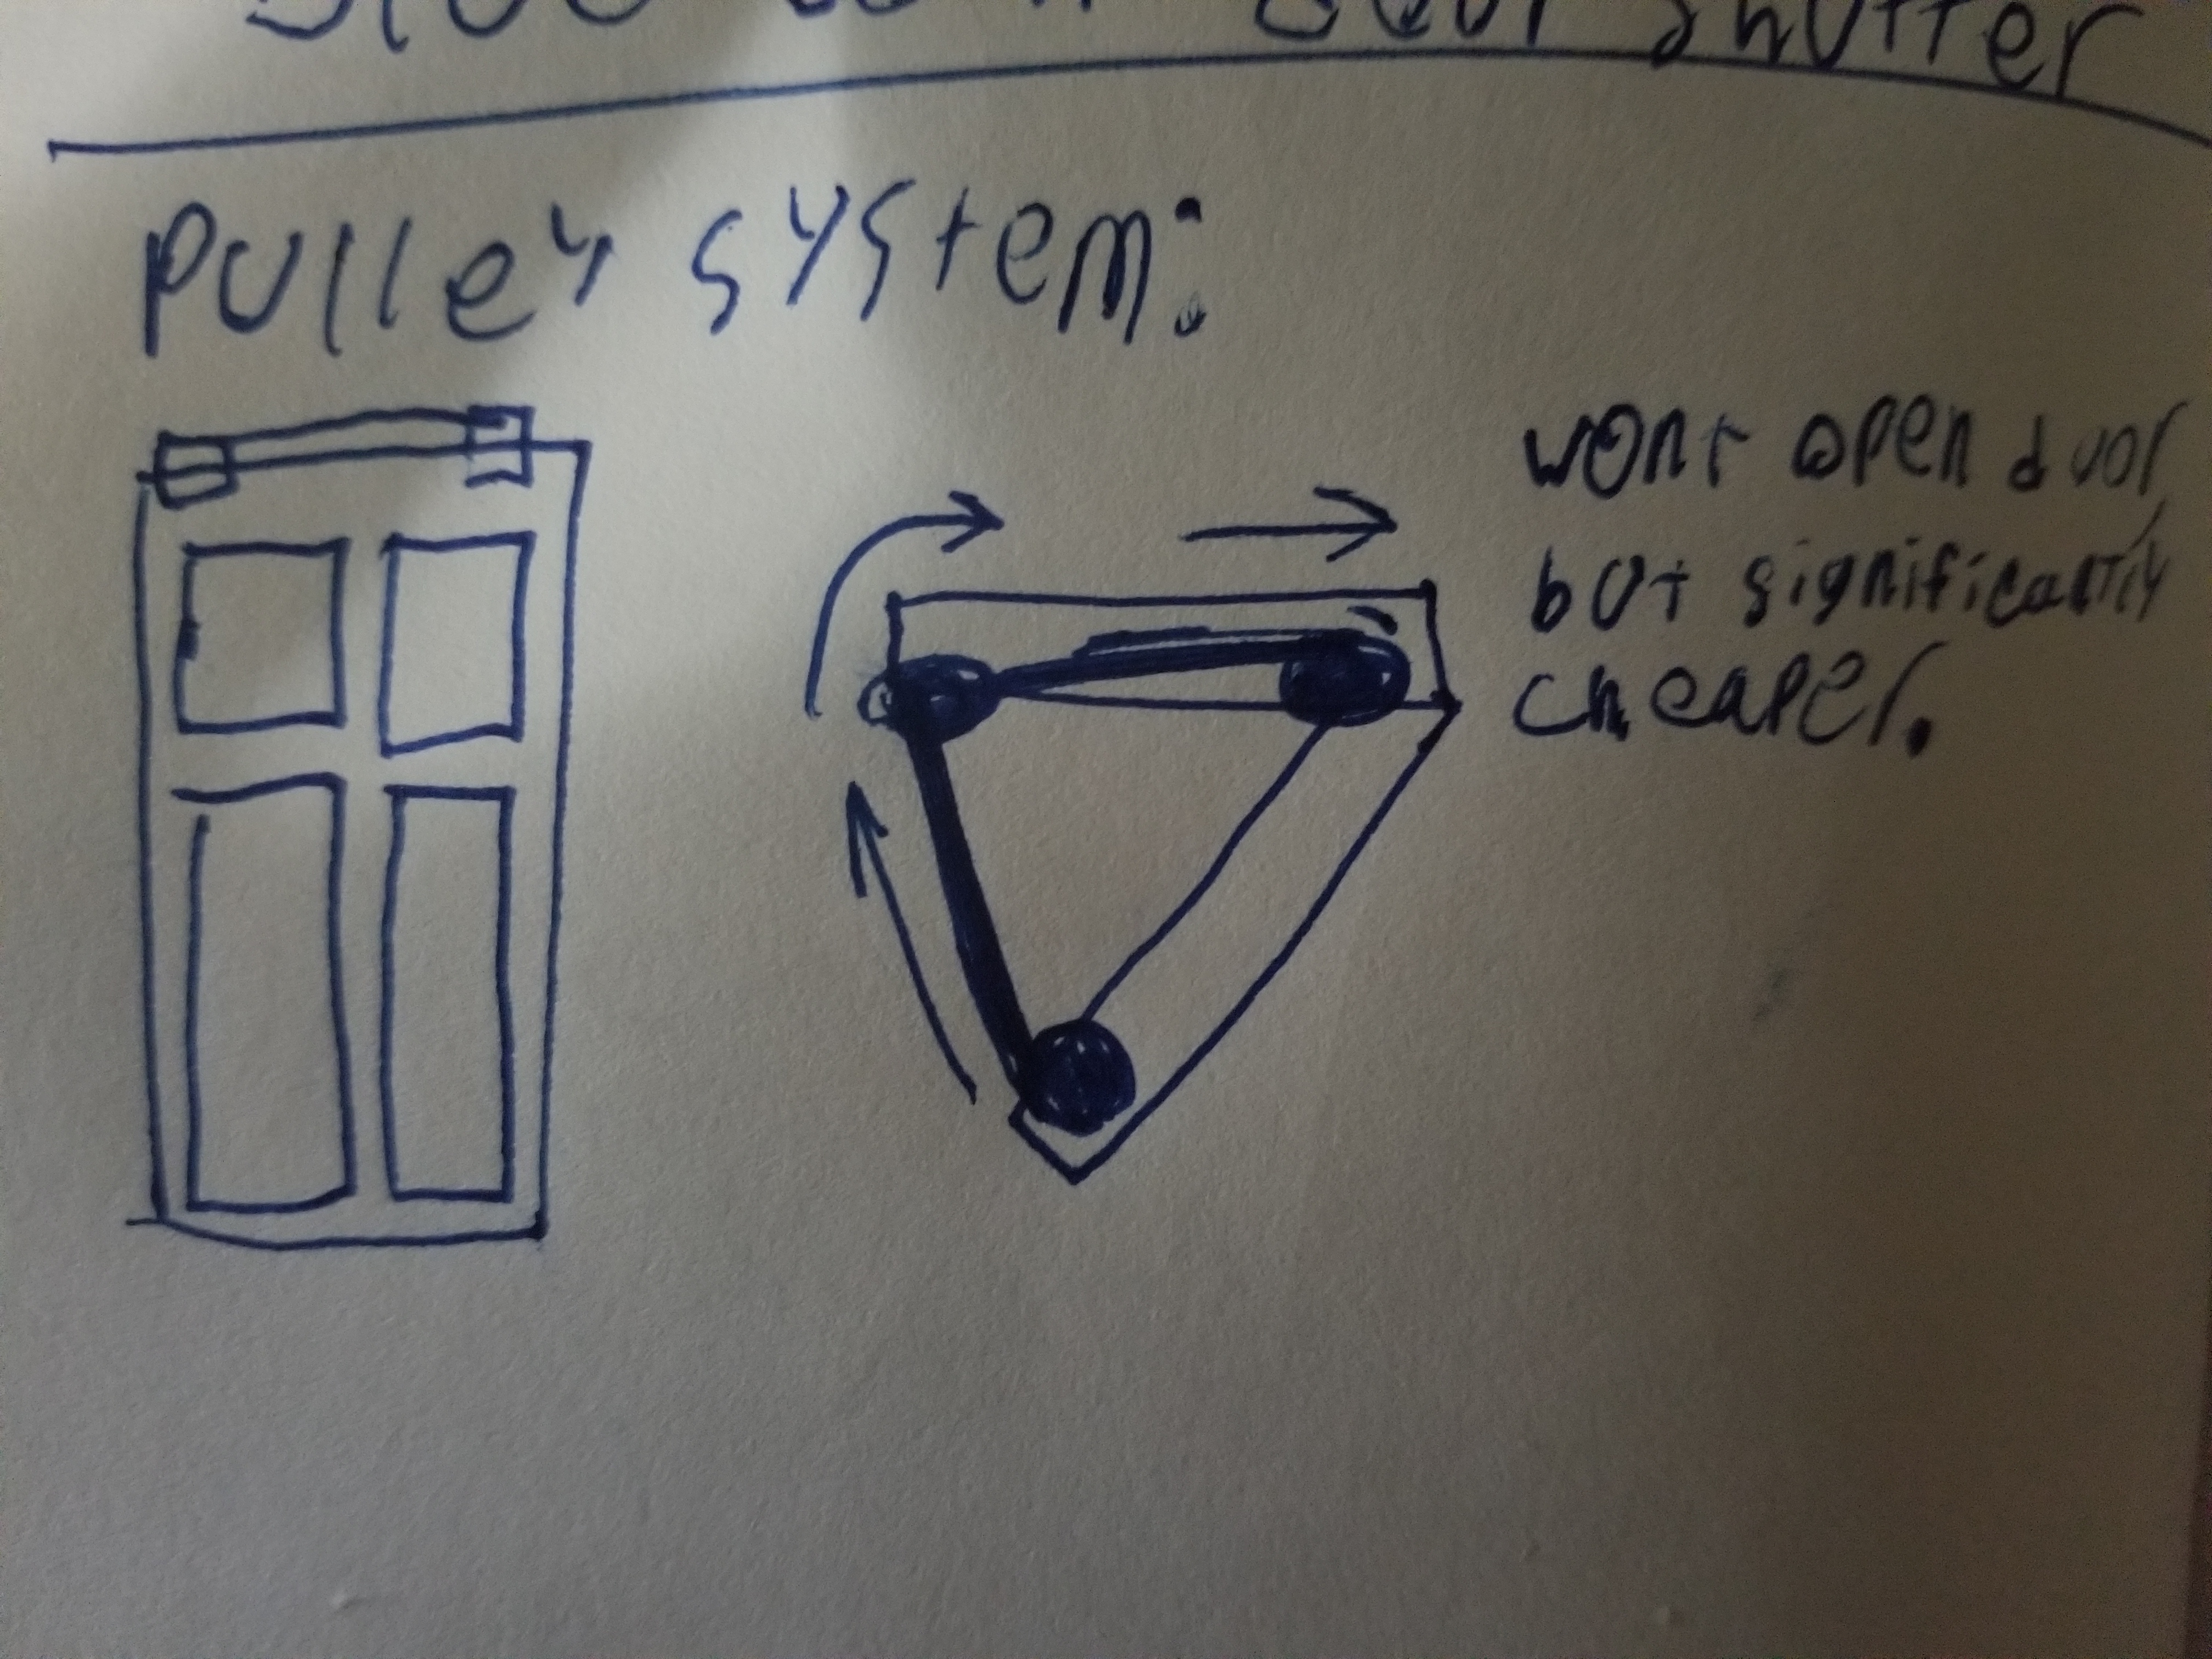 pulley system:
wont open door
but significantly
cheaper.